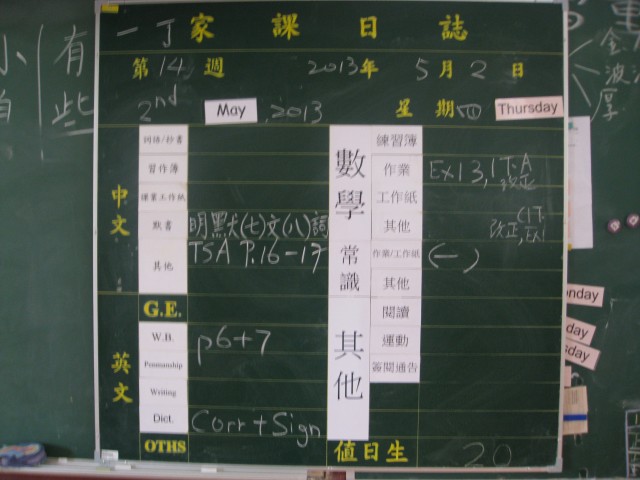 一丁 家課日誌
第14週 2013年 5月2日
2nd May 2013 星期四 Thursday
中文
詞語/抄書
習作簿
課堂工作紙
默書 明默犬(七)文(八)詞
其他 TSA P.16-17
英文
G.E.
W.B. p6+7
Penmanship
Writing
Dict. Corr+Sign
OTHS
數學
練習簿
作業 Ex13,1T.A 改正
工作紙
其他 改正,EX1
常識
作業/工作紙 (一)
其他
其他
閱讀
運動
簽閱通告
值日生 20
小 有些
金波厚
nday
day
sday